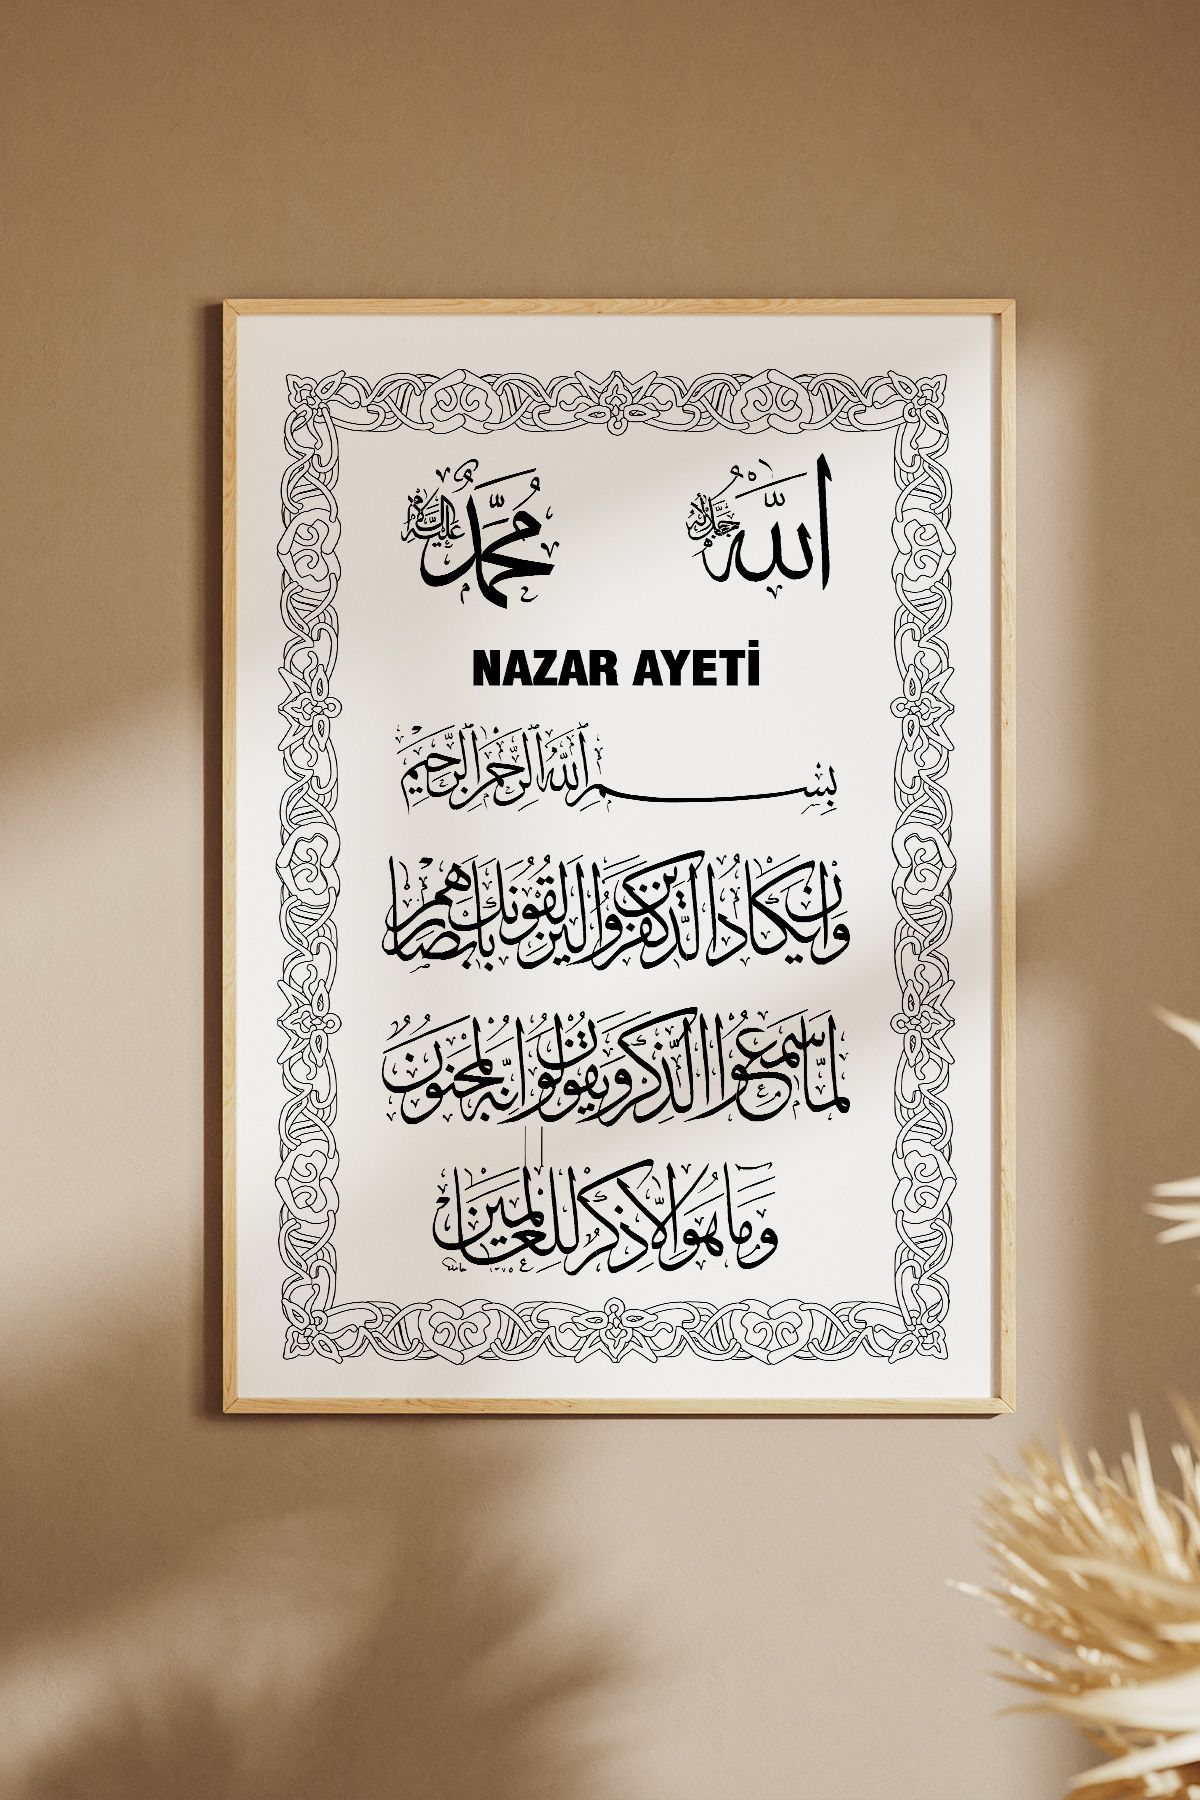 الله جل جلاله
محمد عليه السلام
NAZAR AYETİ
بِسْمِ اللّٰهِ الرَّحْمٰنِ الرَّحِيمِ
وَاِنْ يَكَادُ الَّذِينَ كَفَرُوا لَيُزْلِقُونَكَ بِاَبْصَارِهِمْ
لَمَّا سَمِعُوا الذِّكْرَ وَيَقُولُونَ اِنَّهُ لَمَجْنُونٌ
وَمَا هُوَ اِلَّا ذِكْرٌ لِلْعَالَمِينَ
حامد ١٣٧٥